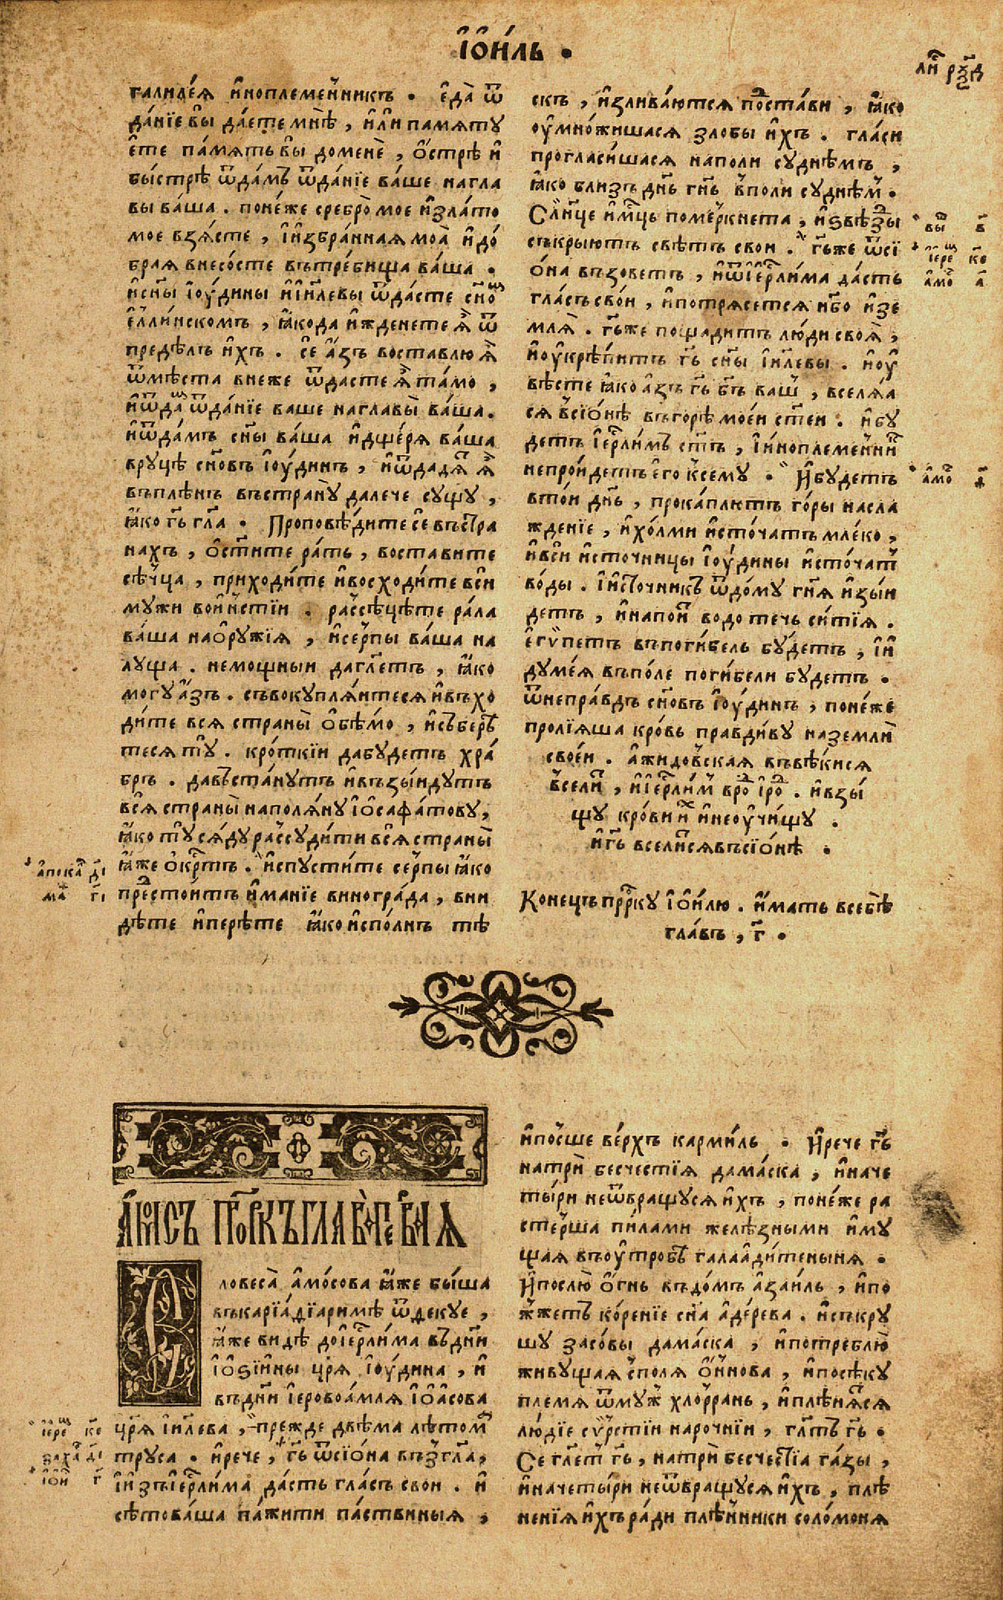 І҆О҆И́ЛЬ .
галиле́я и҆ноплеме́нникъ . еда̀ ѿ
да́нїе вы да́етемнѣ , и҆лѝ памяту
е́те па́мять вы доменѐ , о҆́стрѣ и҆
быстрѣ ѿда́мъ ѿда́нїе ва́ше нагла
вы ва́ша . поне́же сребро̀ мое и҆зла́то
мое взя́сте , і҆и҆збра́нная моа̀ и҆до́
брая внесо́сте вътре́бища ва́ша .
и҆сн҃ы і҆оу́дины и҆і҆и҃левы ѿда́сте сн҃о
е҆́ллинскомъ , ꙗ҆́кода и҆жденете ѧ҆̀ ѿ
предѣ́лъ и҆́хъ . се а҆́зъ воставлю ѧ҆̀
ѿмѣста внеже ѿдасте ѧ҆̀ та́мо ,
и҆ѿда ѿда́нїе ваше наглавы̀ ва́ша .
и҆ѿда́мъ сн҃ы ва́ша и҆дще́ря ва́ша
вруцѣ сн҃овъ і҆оу́динъ , и҆ѿдадѧ ѧ҆̀
въплѣ́нъ въстрану̀ далече су́щу ,
ꙗ҆́ко гь҃ гл҃а . Проповѣ́дите се въстра
нахъ , ѡ҆ст҃и́те ра́ть , воставите
сѣчца , приходи́те и҆восходи́те вси́
мужи вои́нстїи . разсѣцѣте ра́ла
ва́ша наѻ҆ружїя , и҆се́рпы ва́ша на
луща . немощныи даглетъ , ꙗ҆́ко
могу́ а҆́зъ . съвокупля́итеся и҆въхо
ди́те вся страны̀ о҆бѣ́мо , и҆събер
тесѧ тꙋ . кро́ткїи дабудетъ хра́
бръ . давъста́нутъ и҆възы́идутъ
вся́ страны̀ наполя́ну і҆о҆сафа́тову ,
ꙗ҆́ко тꙋ ся́ду разсуди́ти вся́ страны̀
ꙗ҆́же о҆́кртъ . и҆спусти́те се́рпы ꙗ҆́ко
престои́тъ и҆ма́нїе виногра́да , вни
дѣ́те и҆перѣ́те ꙗ҆́ко и҆спо́линъ тѣ
скъ , и҆злива́ются поста́ви , ꙗ҆́ко
оу҆мно́жишася зло́бы и҆́хъ . гла́си
прогласи́шася наполи судне́мъ ,
ꙗ҆́ко близъ дн҃ь гн҃ь вполи судне́м .
Сл҃нце и҆мц҃ъ поме́ркнета , и҆ѕвѣзды
съкрыютъ свѣ́тъ свои . гь҃же ѿсї
о́на възоветъ , и҆ѿі҆ер҃лима да́сть
гла́съ сво́и , и҆потрясется нб҃о и҆зе
мля̀ . гь҃же пощади́тъ лю́ди своя̀ ,
и҆оу҆крѣпи́тъ гь҃ сн҃ы і҆и҃левы . и҆оу҆
вѣсте ꙗ҆́ко а҆́зъ гь҃ бг҃ъ ваш , вселя́а
ся всїо́нѣ въгорѣ мое́и ст҃ѣи . и҆бу
детъ і҆ер҃ли́мъ ст҃ъ , и҆и҆ноплеме́нни
непрои́детъ е҆го̀ ксему . И҆будетъ
вто́и дн҃ь , прока́плютъ го́ры насла
жде́нїе , и҆хо́лми и҆сточа́тъ мле́ко ,
и҆вси и҆сто́чницы і҆оу́дины и҆сточа́т
во́ды . и҆и҆сто́чникъ ѿдо́му гн҃я и҆зы́и
детъ , и҆напои во́до течь си́тїя .
е҆гѵ́петъ въпоги́бель бу́детъ , і҆и҆
думе́я въпо́ле поги́бели бу́детъ .
ѿнепра́вдъ сн҃овъ і҆оу́динъ , поне́же
пролїя́ша кро́вь прави́дву наземлѝ
свое́и . а҆жидо́вская въвѣ́кися
всели , и҆і҆ер҃ли́м вро и҆ро . и҆взы́
щу кро́ви и҆ и҆неоу҆чи́щу .
и҆гь҃ всели́ся въсїо́нѣ .
Коне́цъ прр҃ку і҆о҆и́лю . и҆мать всебѣ̀
гла́въ , г҃ .
А҆МОСЪ ПРОРКЪ ГЛАВА ПЕРВАЯ
Словеса̀ а҆мо́сова ꙗ҆́же бы́ша
въкарїаѳїаримѣ ѿ ѳекуе ,
ꙗ҆́же ви́дѣ доі҆ер҃ли́ма въдн҃и
і҆о҆ѕїи́ны цр҃я і҆оу́дина , и҆
въдн҃и і҆еровоа́мля і҆о҆а́сова
цр҃я і҆и҃лева , прежде двѣма лѣто́м
труса . и҆рече , гь҃ ѿсїо́на възгла̀ ,
и҆и҆зъі҆ер҃ли́ма да́сть гла́съ свои . и҆
сѣтова́ша па́жити па́ствиныя ,
и҆посше ве́рхъ карми́ль . И҆рече гь҃
натри̂ бесче́стїя дама́ска , и҆наче
ты́ри неѿвращуся и҆́хъ , поне́же ра
сте́рша пи́лами желѣ́зными и҆му
щая въоу҆тро́бѣ галаади́теныня .
И҆послю̀ о҆́гнь въдо́мъ а҆заи́ль , и҆по
жжетъ ко́ренїе сн҃а а҆де́рева . и҆съкру
шу засо́вы дама́ска , и҆потреблю̀
живу́щая споля о҆́ннова , и҆посѣку́
племя ѿмуж хло́рранъ , и҆плѣня́ся
лю́дїе сѵ́рстїи наро́чнїи , гл҃тъ гь҃ .
Се гл҃етъ гь҃ , натри̂ бесче́стїа га́зы ,
и҆начеты́ри неѿвращуся и҆́хъ , плѣ
не́нїя и҆́хъ ра́ди плѣ́нники соло́моня